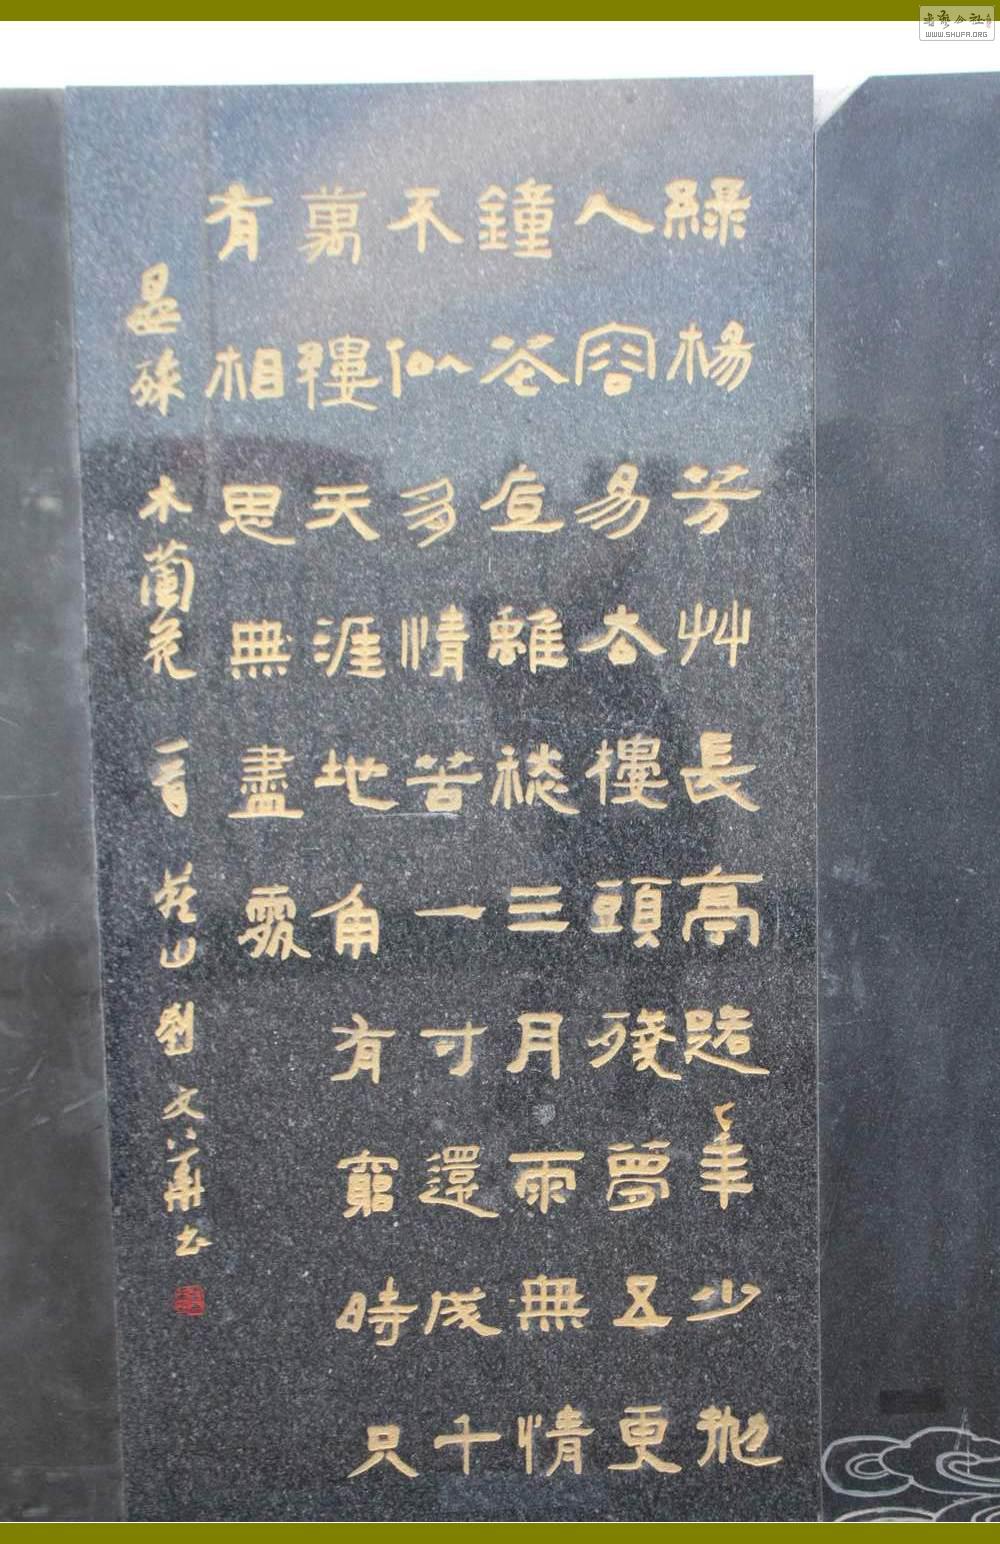 綠楊芳艸長亭路年少拋
人容易去樓頭殘夢五更
鐘花底離愁三月雨無情
不似多情苦一寸還成千
萬縷天涯地角有窮時只
有相思無盡處
晏殊 木蘭花 一首 燕山 劉文華書
書藝公社
WWW.SHUFA.ORG